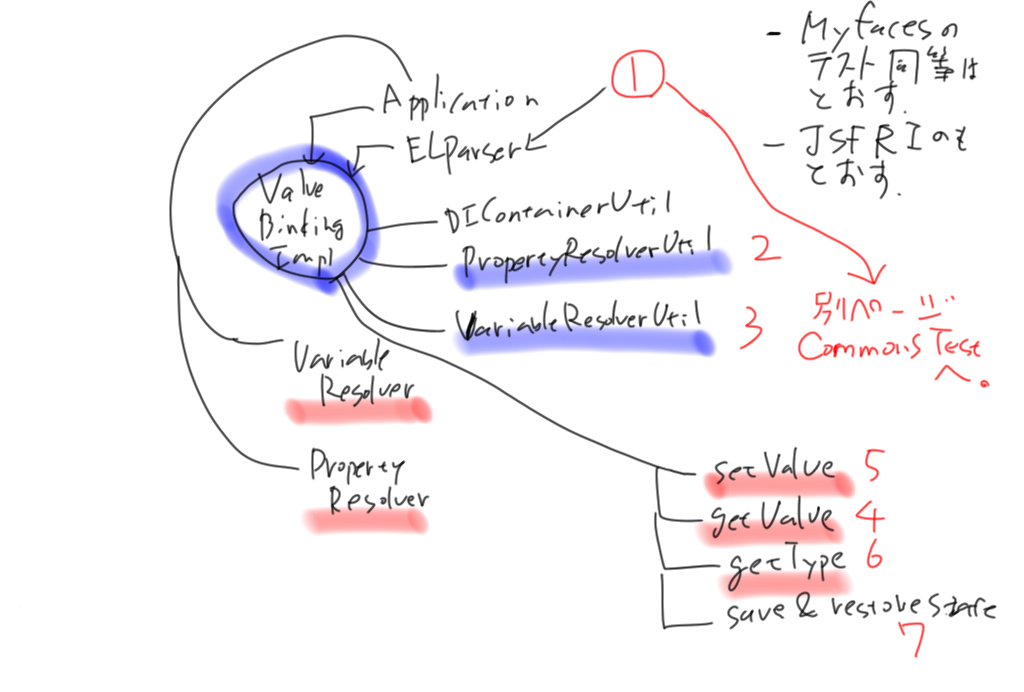 - Myfacesの
テスト同等は
とおす.
- JSF RIのも
とおす.
①
Application
ELParser
Value
Binding
Impl
DIContainerUtil
PropertyResolverUtil 2
VariableResolverUtil 3
別ページ
Commons Test
へ。
Variable
Resolver
Property
Resolver
setValue 5
getValue 4
getType 6
save & restore state
7